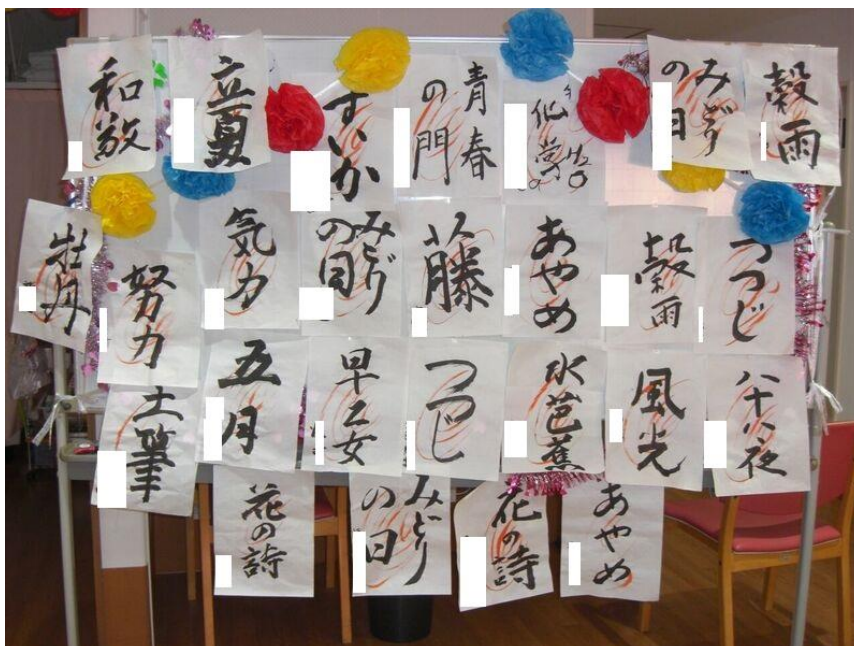 和敬
立夏
すいか
青春
の門
みどり
の日
穀雨
牡丹
努力
気力
みどり
の日
藤
あやめ
穀雨
つつじ
土筆
五月
早乙女
つつじ
水芭蕉
風光
八十八夜
花の詩
みどり
の日
花の詩
あやめ